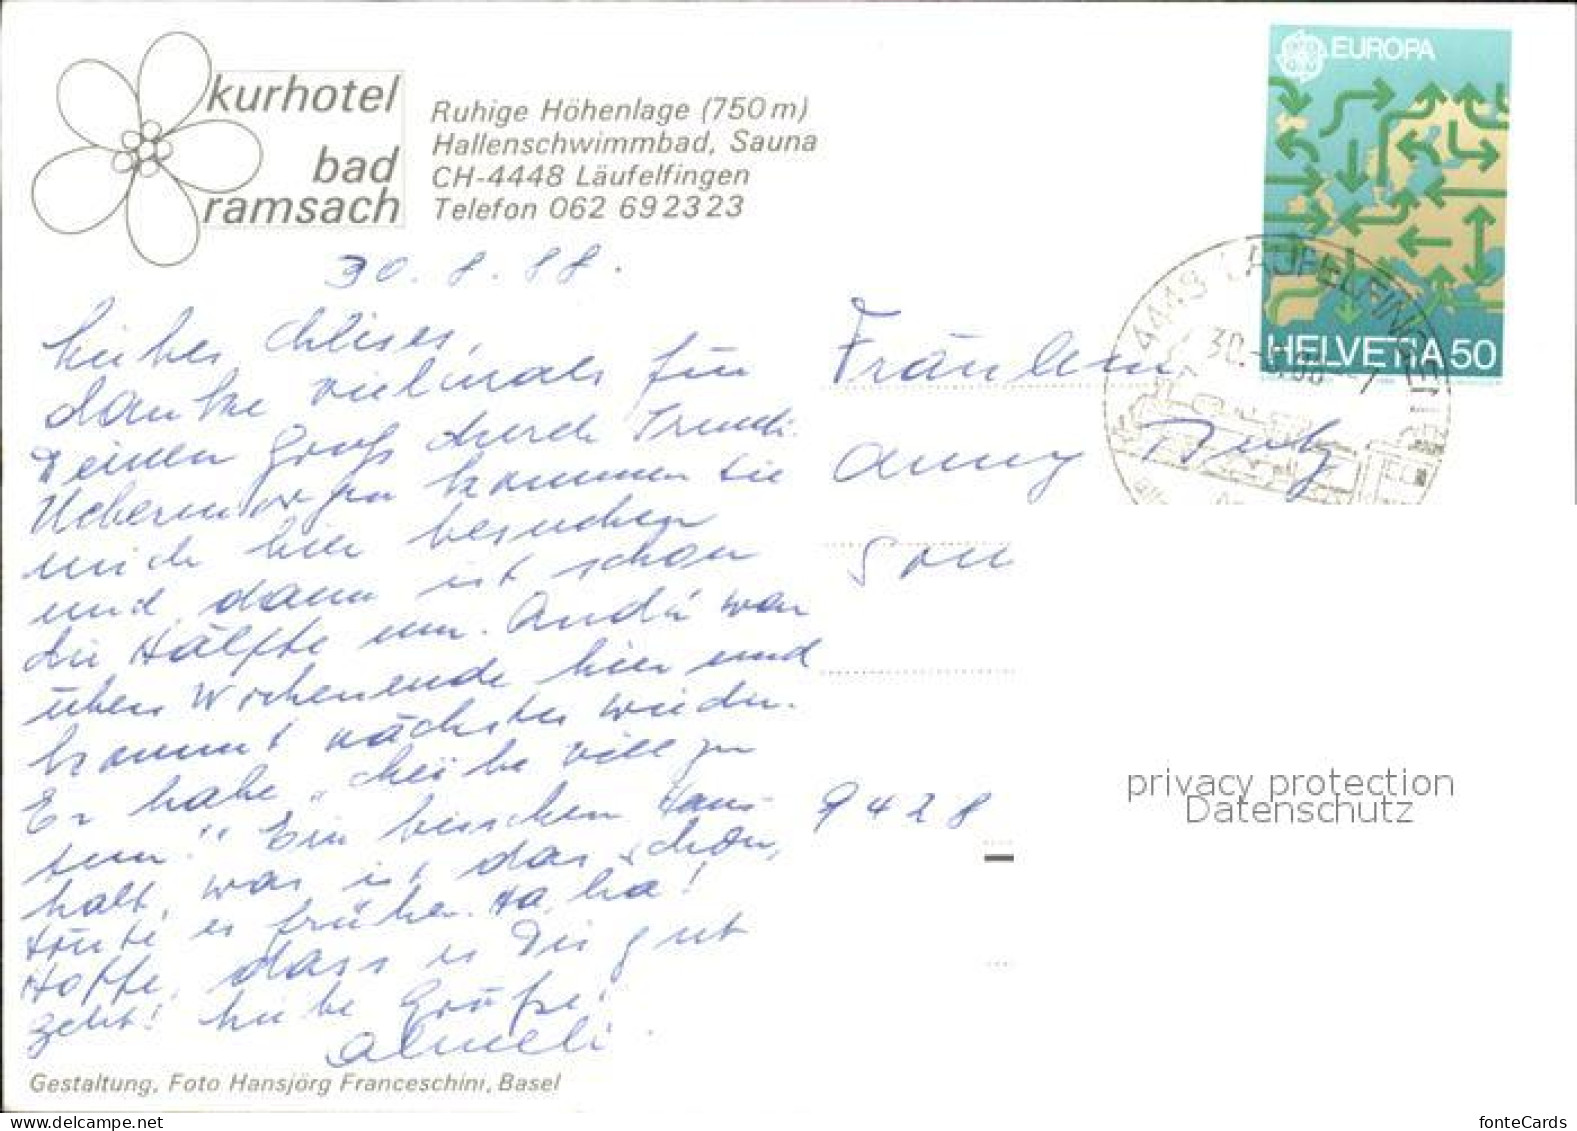 kurhotel
bad
ramsach
Ruhige Höhenlage (750 m)
Hallenschwimmbad, Sauna
CH-4448 Läufelfingen
Telefon 062 69 23 23
EUROPA
HELVETIA 50
4448 LÄUFELFINGEN
30.
30. 8. 88.
danke vielmals für
Deinen Gruß durch Trudi.
Uebermorgen kommen sie
mich hier besuchen
und dann ist schon
die Hälfte um. André war
übers Wochenende hier und
kommt nächstes wieder.
Er habe „cheibe vill zu
tun." Ein bisschen Haus-
halt, was ist das schon,
tönte es früher. Ha, ha!
Hoffe, dass es Dir gut
geht! Liebe Grüße!
Fräulein
Anny
9428
Gestaltung, Foto Hansjörg Franceschini, Basel
privacy protection
Datenschutz
fonteCards